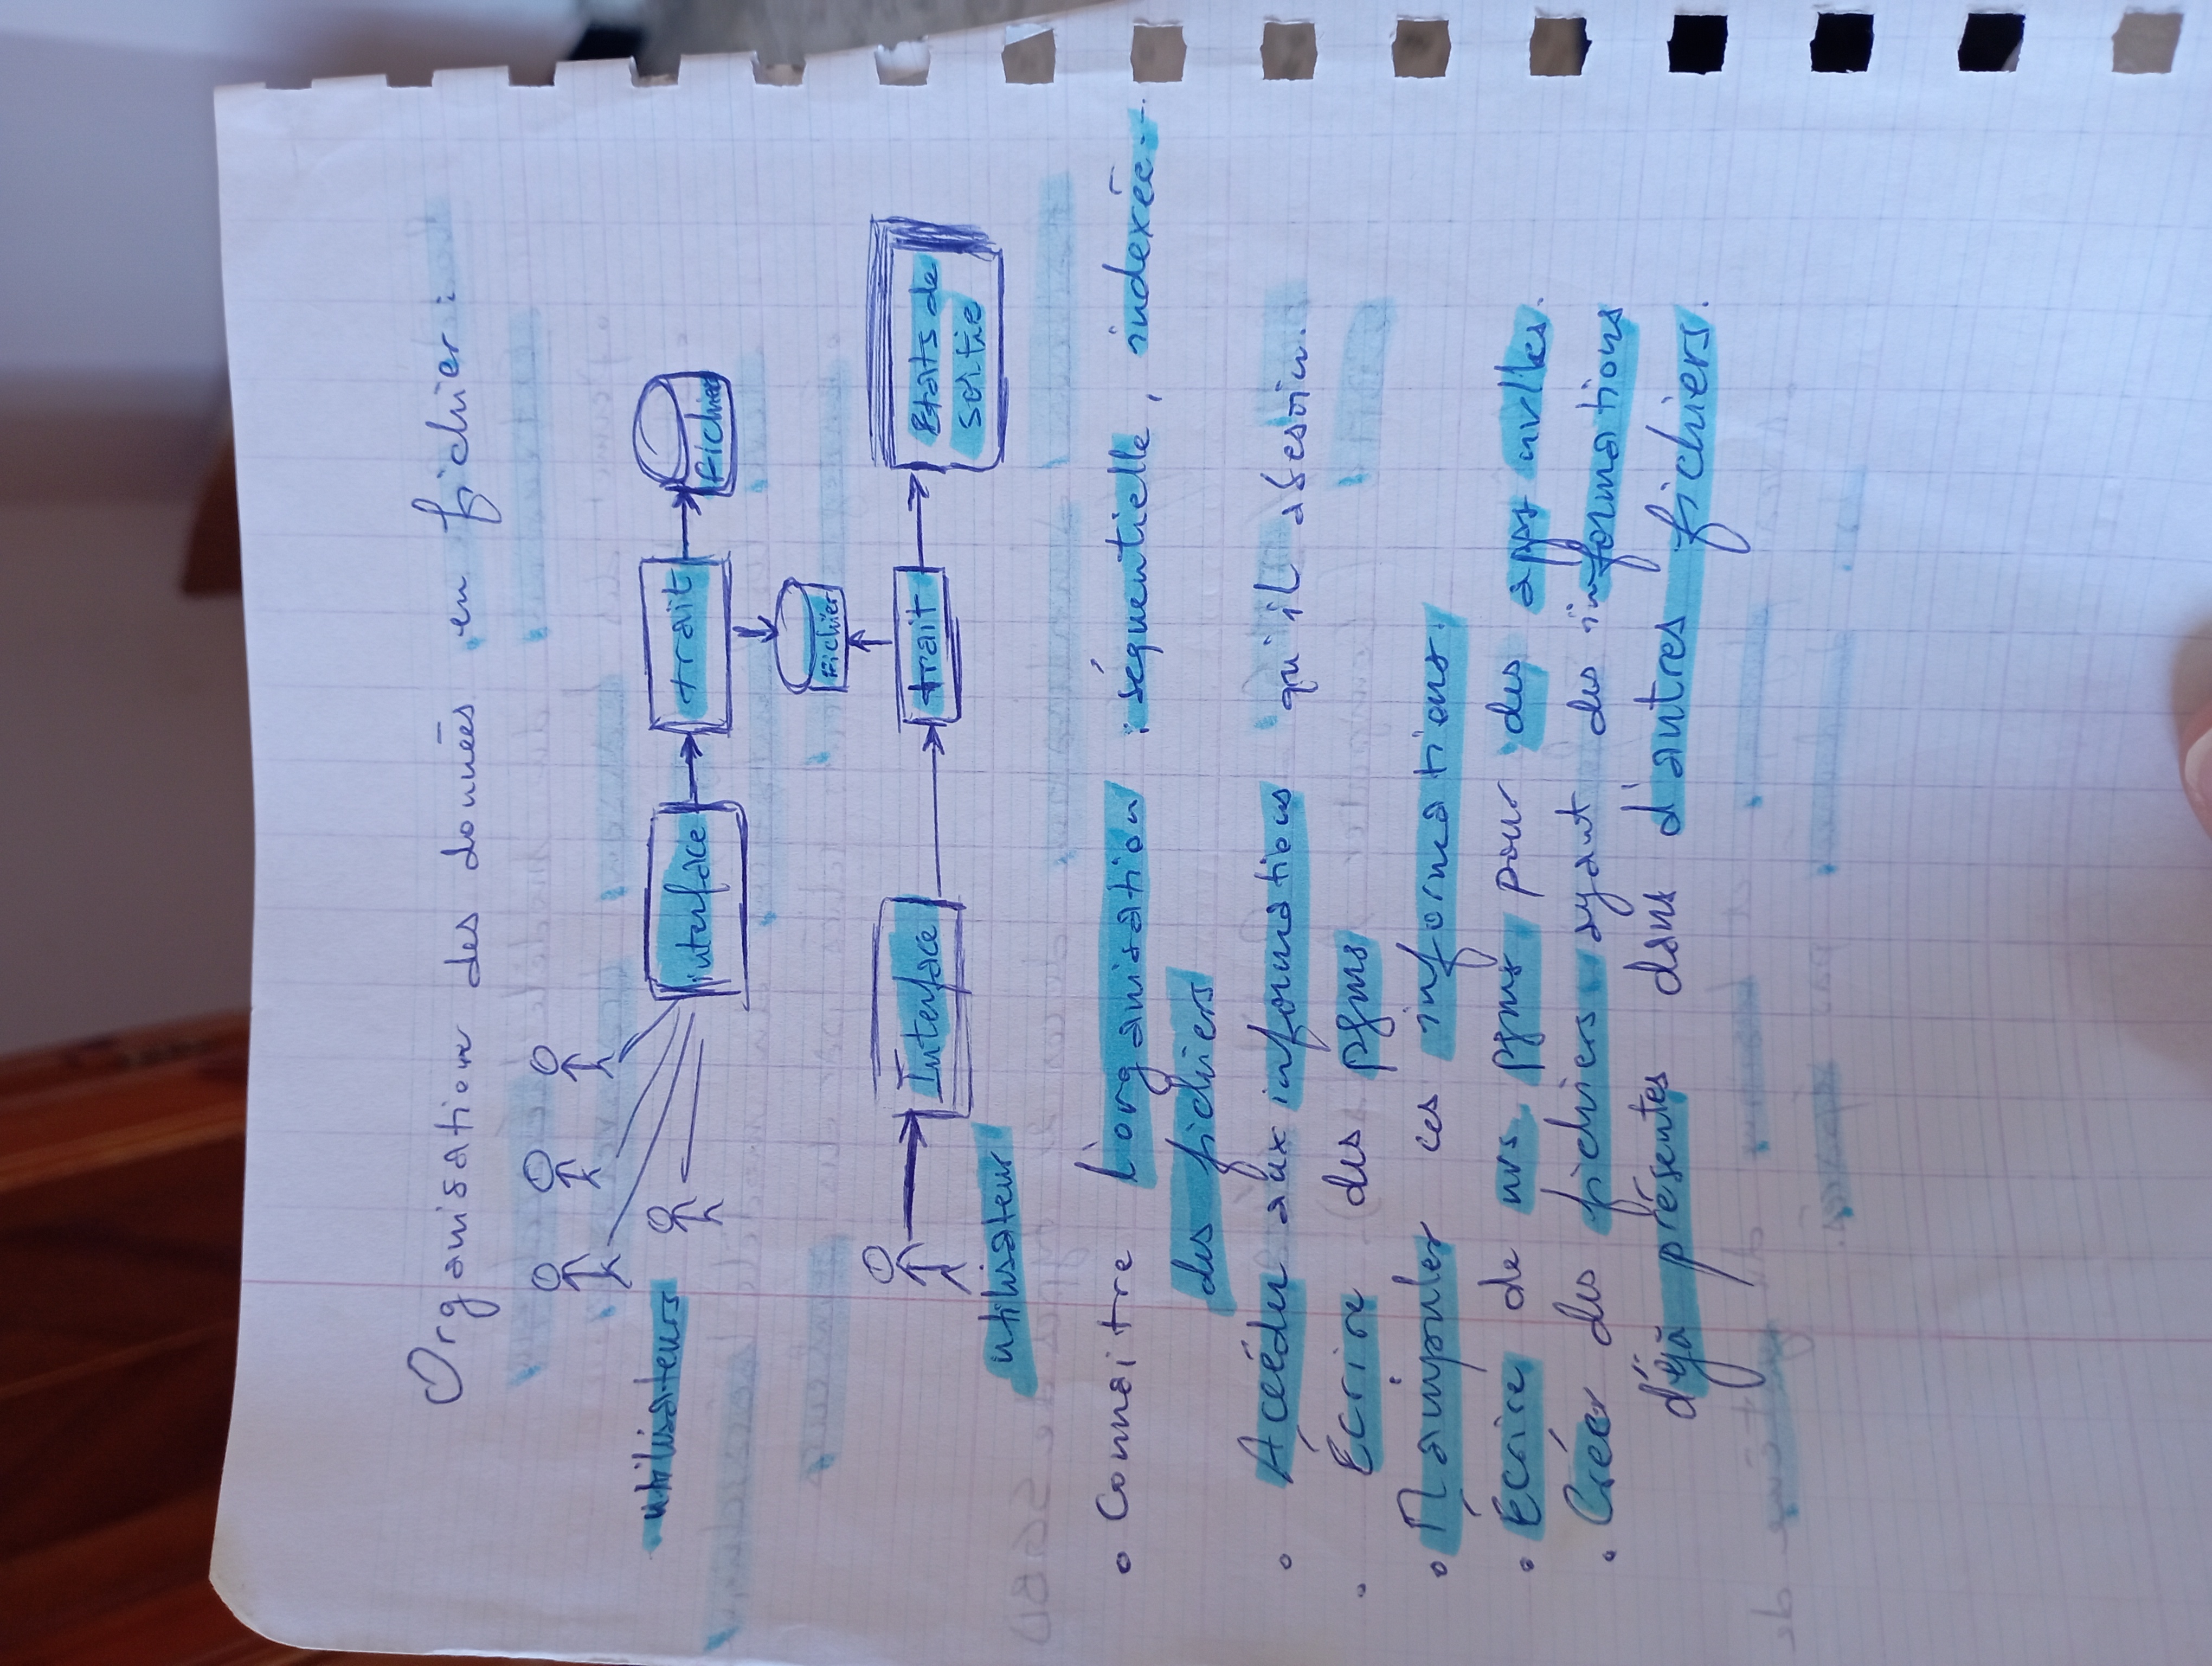 Organisation des données en fichier :
utilisateurs
interface
trait
Fichier
Fichier
Interface
trait
Etats de
sortie
utilisateur
• Connaitre l'organisation : séquentielle, indexée...
des fichiers
• Accéder aux informations qu'il a besoin.
• Écrire des pgms
• Manipuler ces informations.
• Écrire de nvs pgms pour des apps nvlles.
• Créer des fichiers ayant des informations
déjà présentes dans d'autres fichiers.